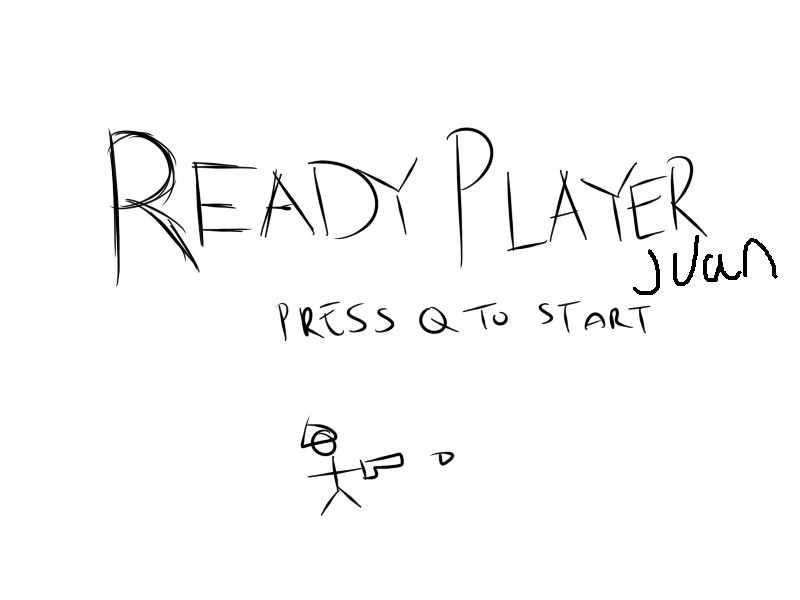 READY PLAYER
juan
PRESS Q TO START